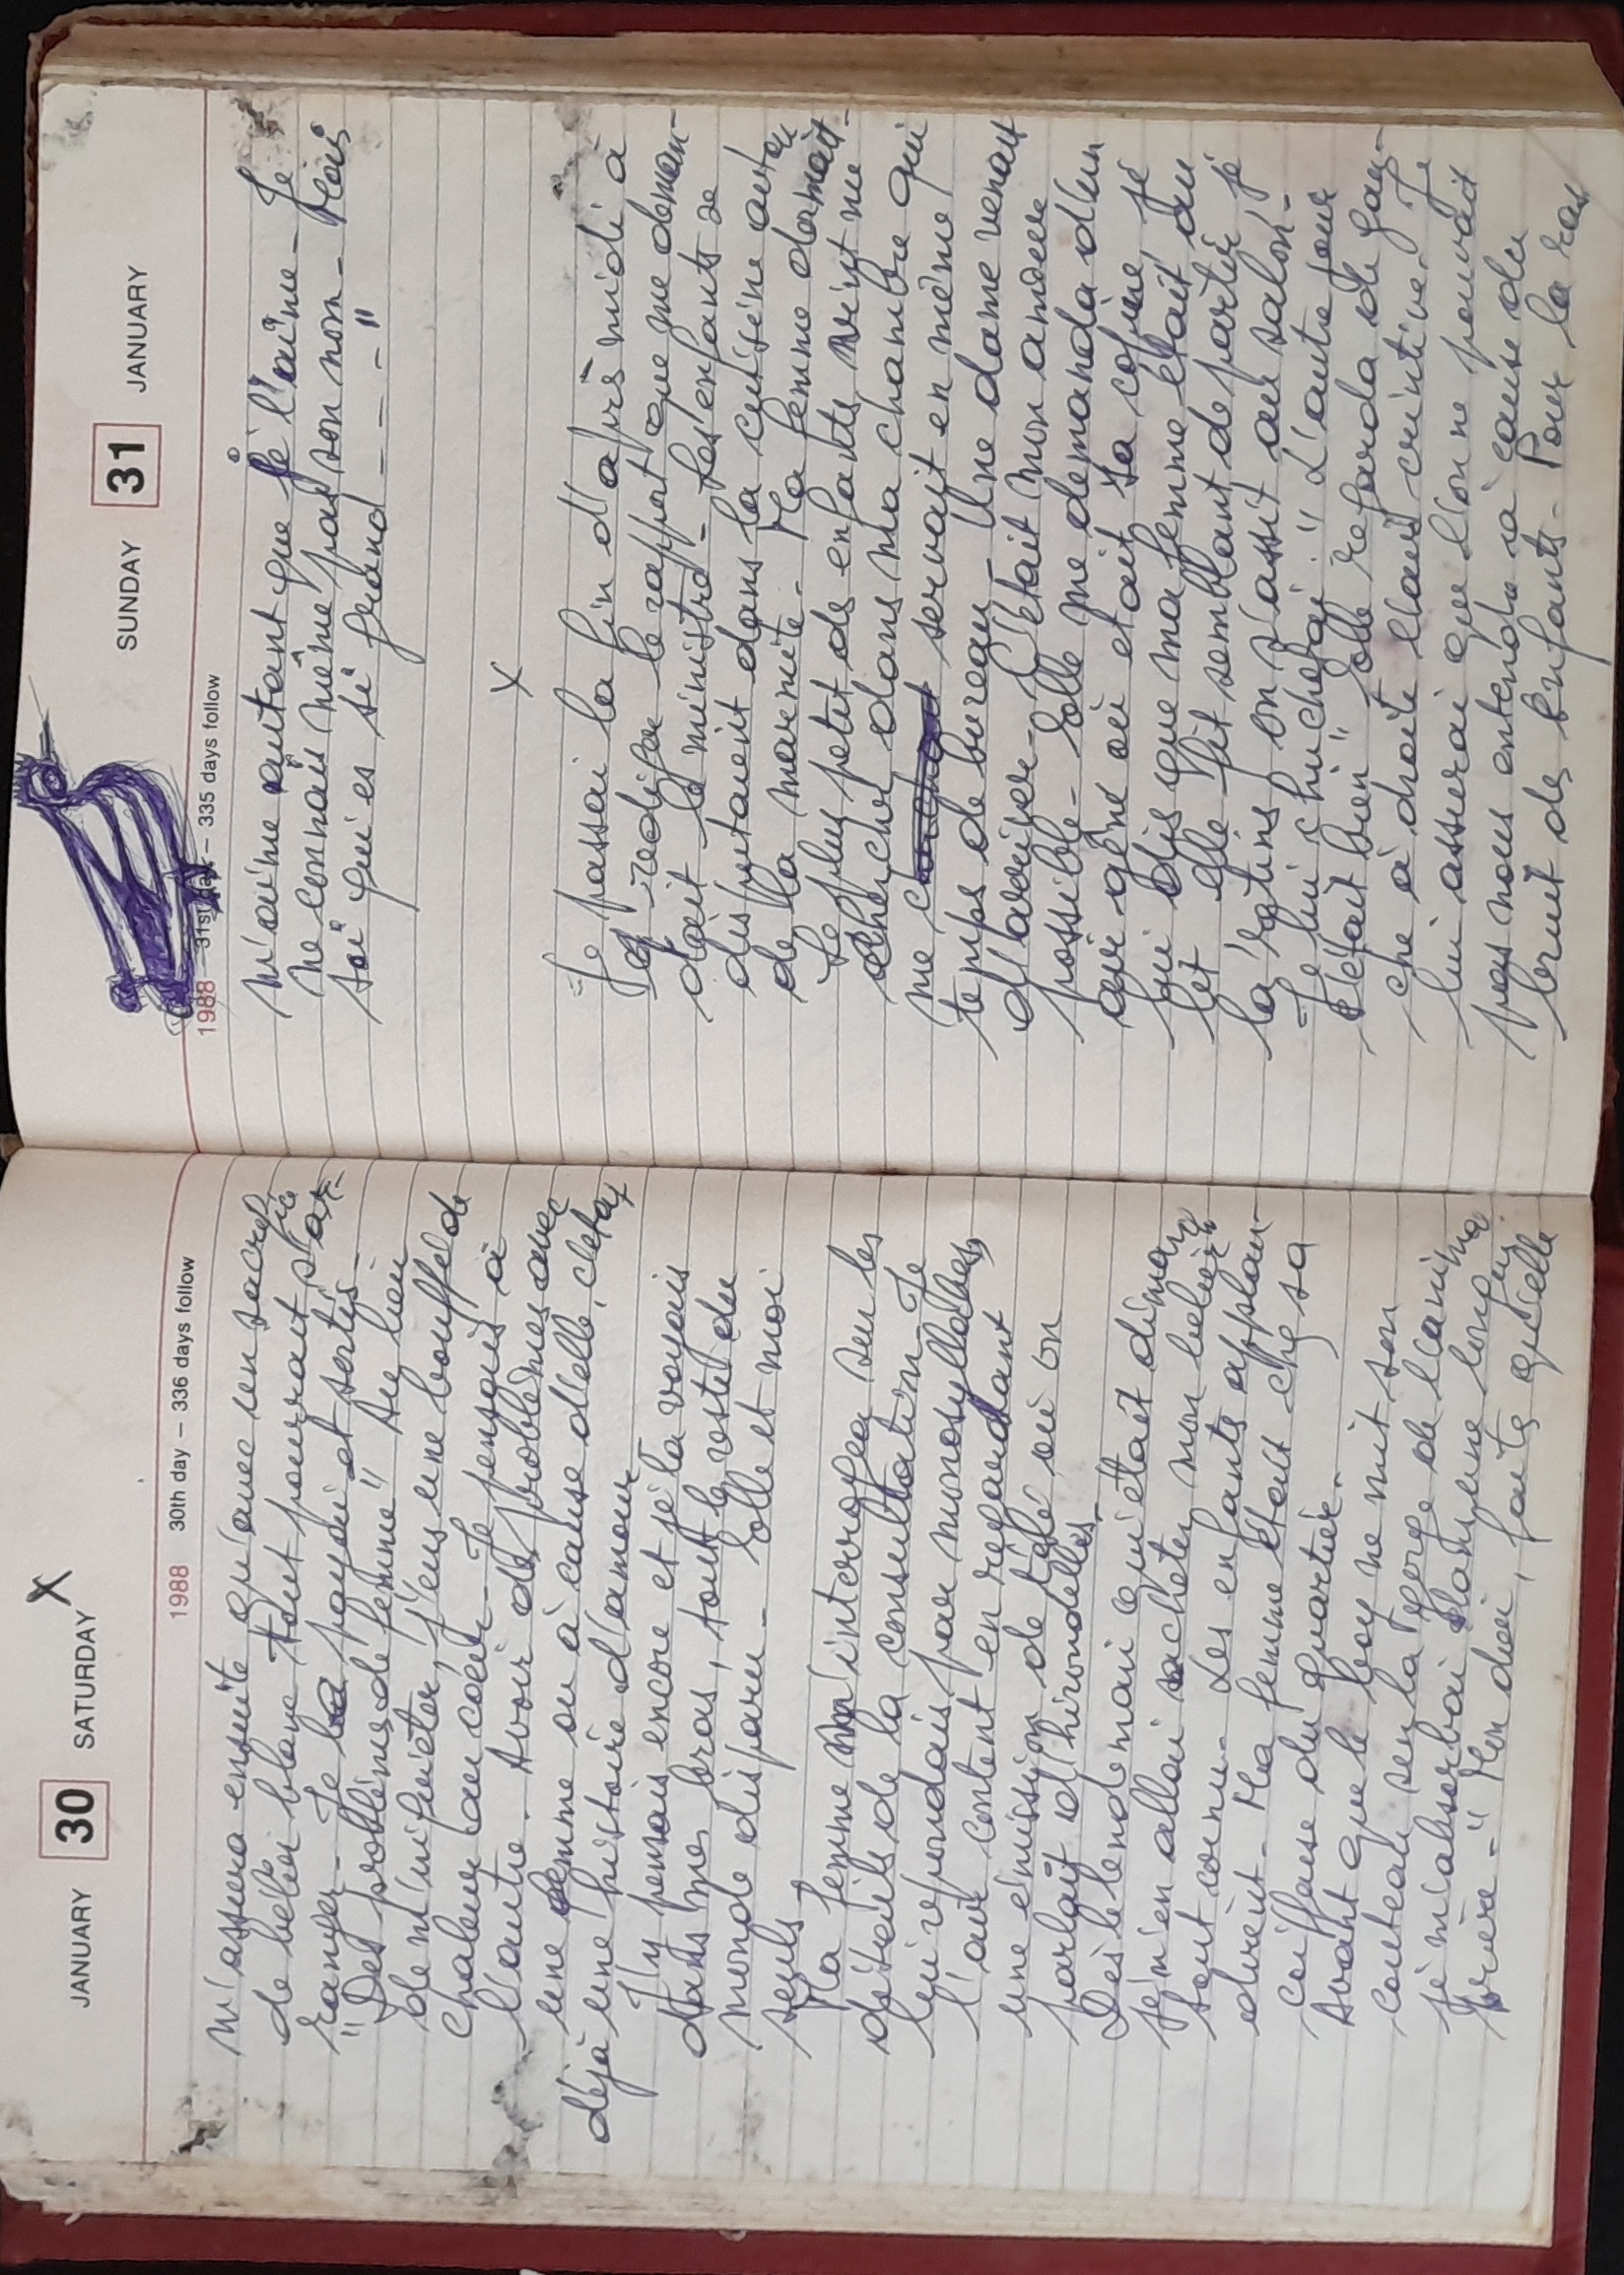 JANUARY 30 SATURDAY X
1988 30th day – 336 days follow
m'assura ensuite qu'avec un sacrifice
de bélier blanc tout pourrait s'ar-
ranger - Je payai et sortis -
"Des problèmes de femme" Au lieu
de m'inquiéter, j'eus une bouffée de
chaleur au coeur - Je pensais à
l'autre. Avoir des problèmes avec
une femme ou à cause d'elle, c'etait
déjà une histoire d'amour
J'y pensais encore et je la voyais
dans mes bras, tout le reste du
monde disparu - Elle et moi
seuls -
Ma femme m'interrogea sur les
détails de la consultation - Je
lui répondais par monosyllabes,
l'air content en regardant
une émission de télé où on
parlait d'hirondelles -
Dès le lendemain qui était diman
je m'en allai acheter mon bélier
tout cornu - Les enfants applau-
dirent - Ma femme était chez sa
coiffeuse du quartier -
Avant que le boy ne mit son
couteau sur la gorge de l'animal
je m'absorbai dans une longue
prière - "Mon dieu, faites qu'elle
SUNDAY 31 JANUARY
1988 31st day – 335 days follow
m'aime autant que je l'aime - Je
ne connais même pas son nom - Mais
toi qui es si grand - - - - "
X
= Je passai la fin d'après midi à
rédiger le rapport que me deman-
dait le ministre - Les enfants se
disputaient dans la cuisine autour
de la marmite - Ma femme dormait -
Le plus petit des enfants vint me
chercher dans ma chambre qui
me servait en même
temps de bureau - Une dame venait
d'arriver - C'était mon amour
possible - Elle me demanda d'un
air gêné où etait sa copine, je
lui dis que ma femme était au
lit elle fit semblant de partir je
la retins on s'assit au salon -
= Je lui chuchotai : " L'autre jour
c'était bien" Elle regarda de gau-
che à droite l'air craintive - Je
lui assurai que l'on ne pouvait
pas nous entendre à cause du
bruit des enfants - Pour la ras